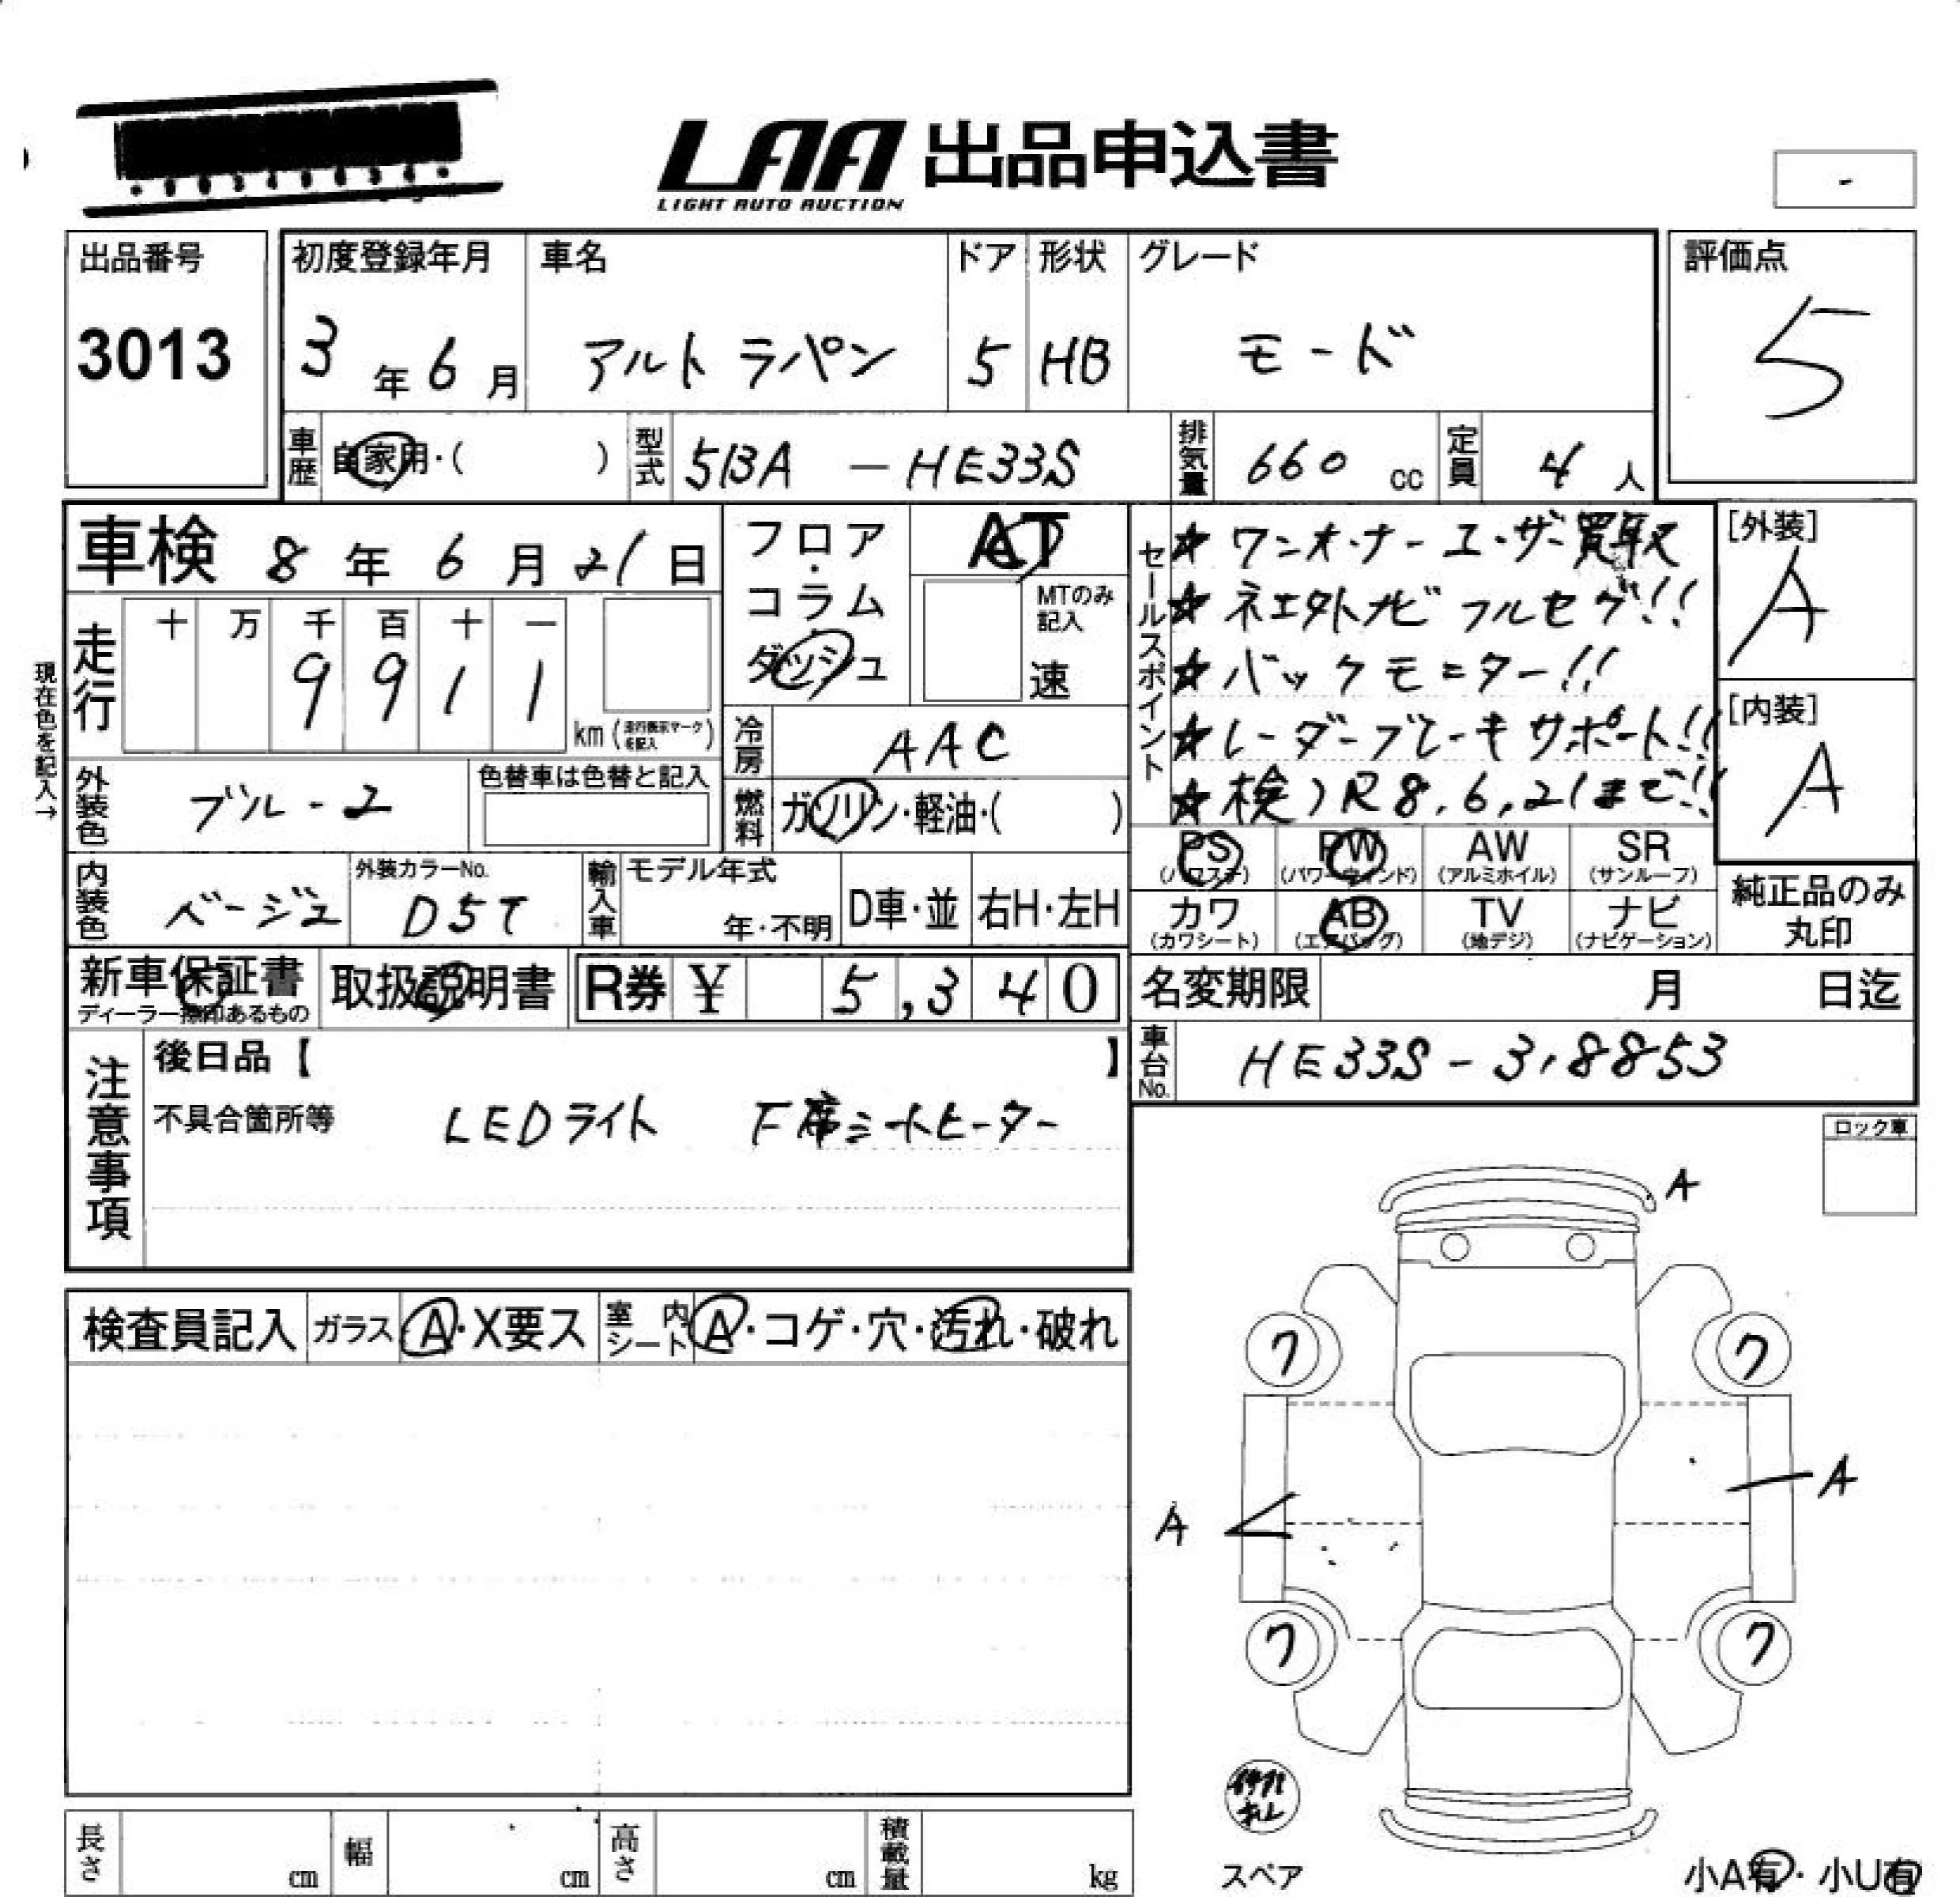 LAA 出品申込書
LIGHT AUTO AUCTION
-
出品番号
3013
初度登録年月
3年6月
車名
アルト ラパン
ドア
5
形状
HB
グレード
モード
評価点
5
車歴
自家用・( )
型式
5BA - HE33S
排気量
660 cc
定員
4人
車検 8年6月21日
フロア・コラム
ダッシュ
AT
MTのみ記入
速
現在色を記入→
走行
十 万 千 百 十 一
9 9 1 1
km(走行表示マークを記入)
冷房
AAC
外装色
ブルー2
色替車は色替と記入
燃料
ガソリン・軽油・( )
内装色
ベージュ
外装カラーNo.
D5T
輸入車
モデル年式
年・不明
D車・並
右H・左H
セールスポイント
★ ワンオーナーユーザー買取
★ 社外ナビ フルセグ!!
★ バックモニター!!
★ レーダーブレーキサポート!!
★ 検)R8.6.21まで!!
[外装]
A
[内装]
A
PS
(パワステ)
PW
(パワーウィンド)
AW
(アルミホイル)
SR
(サンルーフ)
カワ
(カワシート)
AB
(エアバッグ)
TV
(地デジ)
ナビ
(ナビゲーション)
純正品のみ
丸印
新車保証書
ディーラー捺印あるもの
取扱説明書
R券 ¥ 5,340
名変期限 月 日迄
車台No.
HE33S-318853
注意事項
後日品【 】
不具合箇所等
LEDライト F席シートヒーター
ロック車
検査員記入
ガラス
A・X要ス
室内シート
A・コゲ・穴・汚れ・破れ
A
ワ ワ
A
A
ワ ワ
スペア
小A有・小U有
長さ cm
幅 cm
高さ cm
積載量 kg